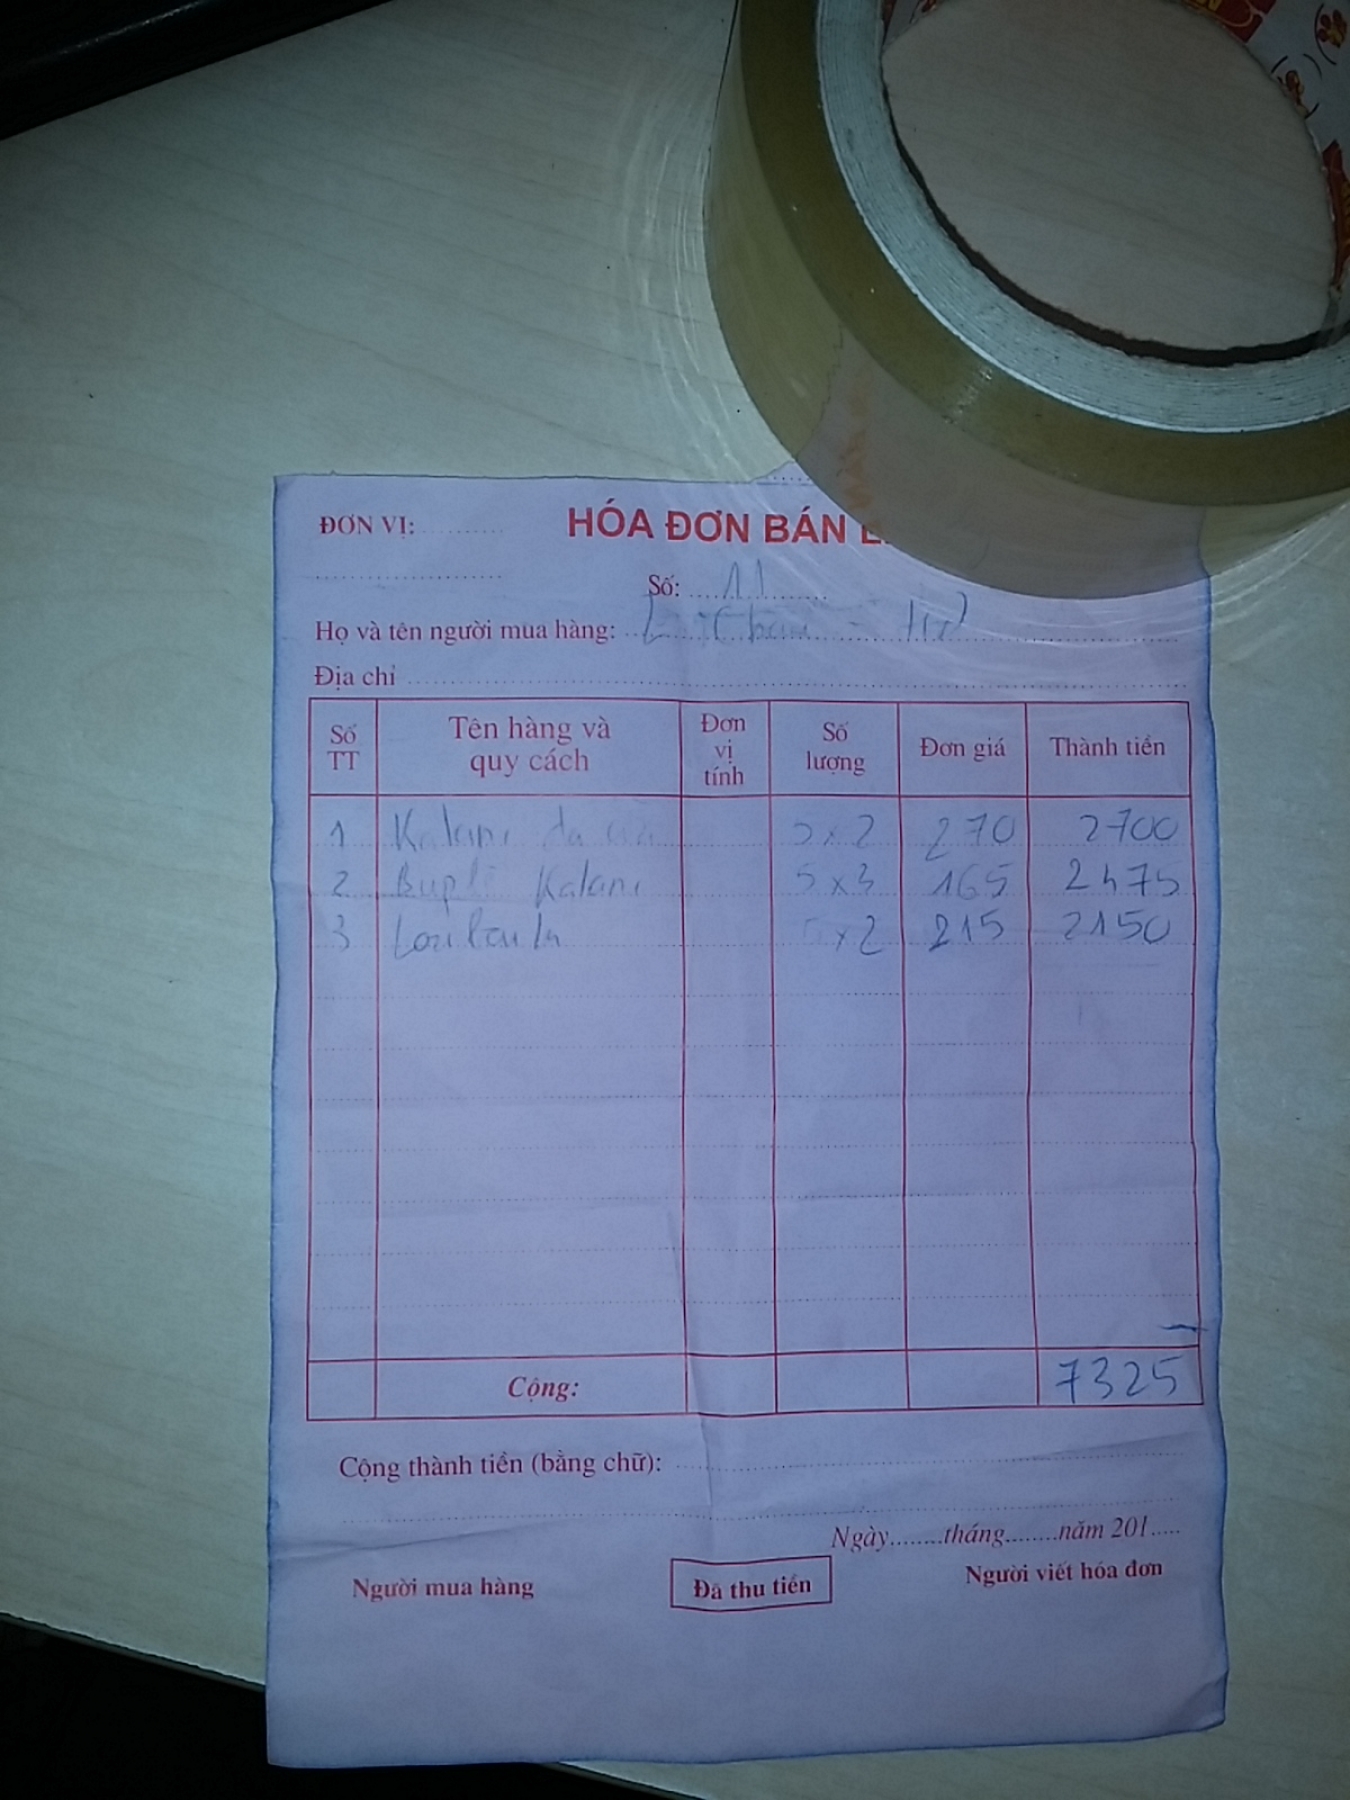 ĐƠN VỊ: HÓA ĐƠN BÁN
Số: 11
Họ và tên người mua hàng:
Địa chỉ
Số TT Tên hàng và quy cách Đơn vị tính Số lượng Đơn giá Thành tiền
1 Kalani 5x2 270 2700
2 Kalani 5x3 165 2475
3 5x2 215 2150
Cộng: 7325
Cộng thành tiền (bằng chữ):
Ngày........tháng........năm 201.....
Người mua hàng Đã thu tiền Người viết hóa đơn